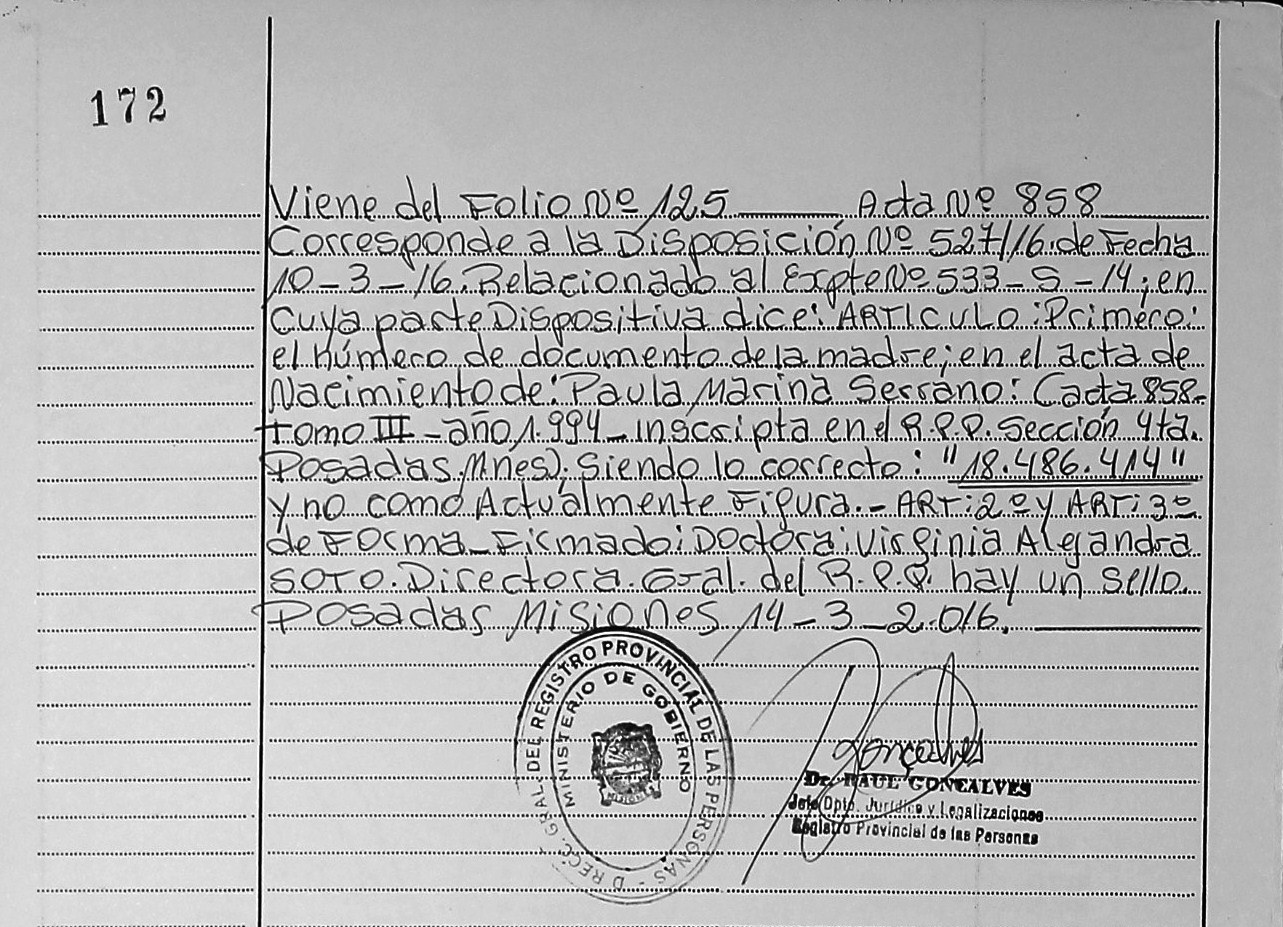 172
Viene del Folio Nº 125 Acta Nº 858
Corresponde a la Disposición Nº 527/16 de Fecha
10-3-16. Relacionado al Expte Nº 533-S-14; en
Cuya parte Dispositiva dice: ARTICULO: Primero:
el número de documento de la madre; en el acta de
Nacimiento de: Paula Marina Serrano: Cacta 858-
tomo III - año 1.994 - inscripta en el R.P.P. Sección 4ta.
Posadas Mnes); Siendo lo correcto: "18.486.414"
y no como Actualmente Figura.- ART: 2º y ART: 3º
de Forma - Firmado: Doctora: Virginia Alejandra
SOTO. Directora Gral. del R.P.P. hay un sello.
Posadas Misiones 14-3-2.016.
DRECC. GRAL. DEL REGISTRO PROVINCIAL DE LAS PERSONAS -
MINISTERIO DE GOBIERNO
MISIONES
Gonçalves
Dr. RAUL GONCALVES
Jefe Dpto. Jurídico y Legalizaciones
Registro Provincial de las Personas